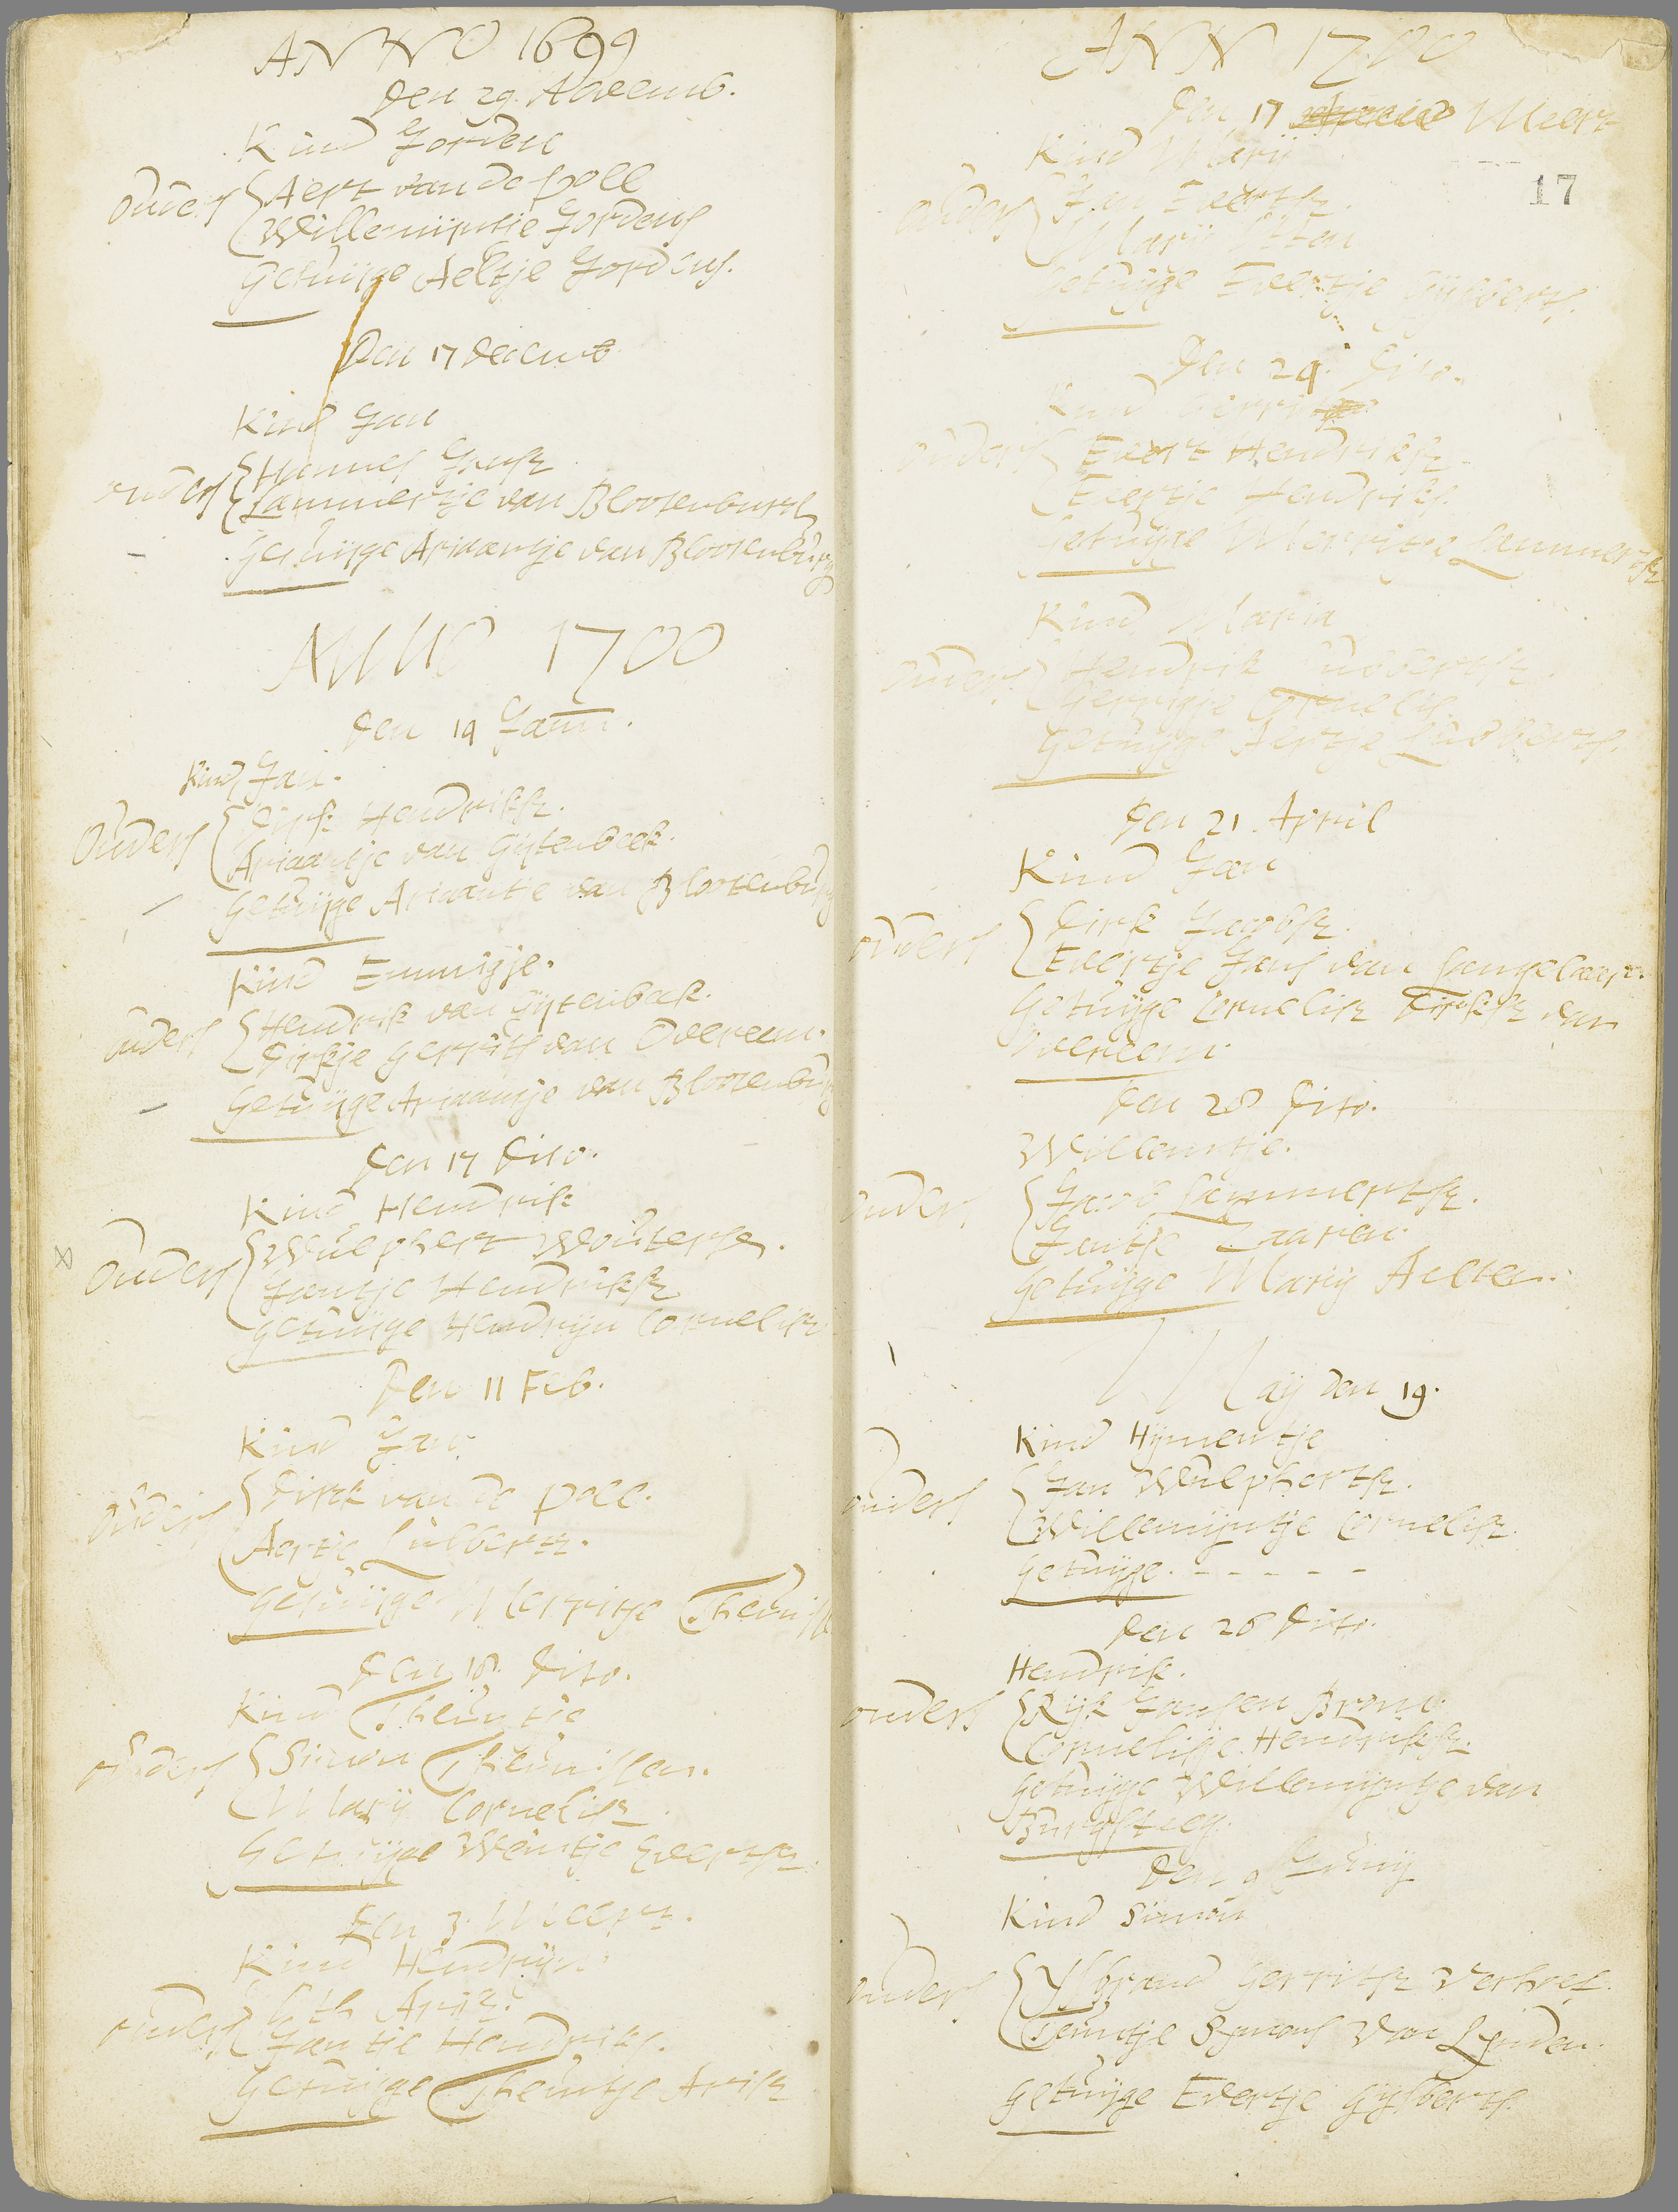 ANNO 1699
Den 29. Novemb.
Kind Jorden
Ouders
Aert van de poll
Willemijntje Jordens
Getuijge Aeltje Jordens.
Den 17 Decemb
Kind Jan
ouders
Hannes Jansz
Lammertje van Blootenburch
Getuijge Ariaantje van Blootenburg
ANNO 1700
Den 14 Janu.
Kind Jan.
Ouders
Dirk Hendriksz.
Ariaantje van Gijtenbeek.
Getuijge Ariaantje van Blootenburg
Kind Emmigje.
ouders
Hendrik van Gijtenbeek.
Dirkje Gerrits van Overeem.
Getuijge Ariaantje van Blootenburg
Den 17 Dito.
Kind Hendrik
Ouders
Wulphert Woutersz.
Jantje Hendriksz
Getuijge Hendrijn Cornelisz
Den 11 Feb.
Kind Jan.
Ouders
Dirk van de poll.
Aertje Lubbertz.
Getuijge Merritje Theuniss
Den 18. Dito.
Kind Theuntje
ouders
Simon Theunissen.
Marij Cornelisz
Getuijge Weintje Evertsz
Den 3. Meert.
Kind Hendrijn
ouders
Jantje Hendriks.
Getuijge Theuntje Arisz
ANN 1700
Den 17 Meert
17
Kind Marij
ouders
Jan Evertsz.
Marij
Getuijge Evertje Gijsberts.
Den 24. Dito.
Kind Gerrit
ouders
Evert Hendriksz
Evertje Hendriks.
Getuijge Merritje Lammertsz
Kind Maria
Ouders
Hendrik Lubbertsz
Gerrigje Cornelis
Getuijge Aertje Lubberts.
Den 21. April
Kind Jan
ouders
Dirk Jacobsz.
Evertje Jans van Langelaar.
Getuijge Cornelisz Dirksz van
Overeem.
Den 28 Dito.
Willemtje.
ouders
Jacob Lammertsz.
Jantje Zaaren.
Getuijge Marij Aelten.
May den 19.
Kind Hijmentje
ouders
Jan Wulphertsz.
Willemijntje Cornelisz.
Getuijge. - - - - -
Den 26 Dito.
Hendrik.
ouders
Rijk Jansen Brons
Cornelisje Hendriksz.
Getuijge Willemijntje van
Burgsteeg.
Den 9 Junij
Kind Simon
ouders
Ysbrand Gerritsz Verhoef.
Teuntje Symons Van Lynden.
Getuijge Evertje Gijsberts.